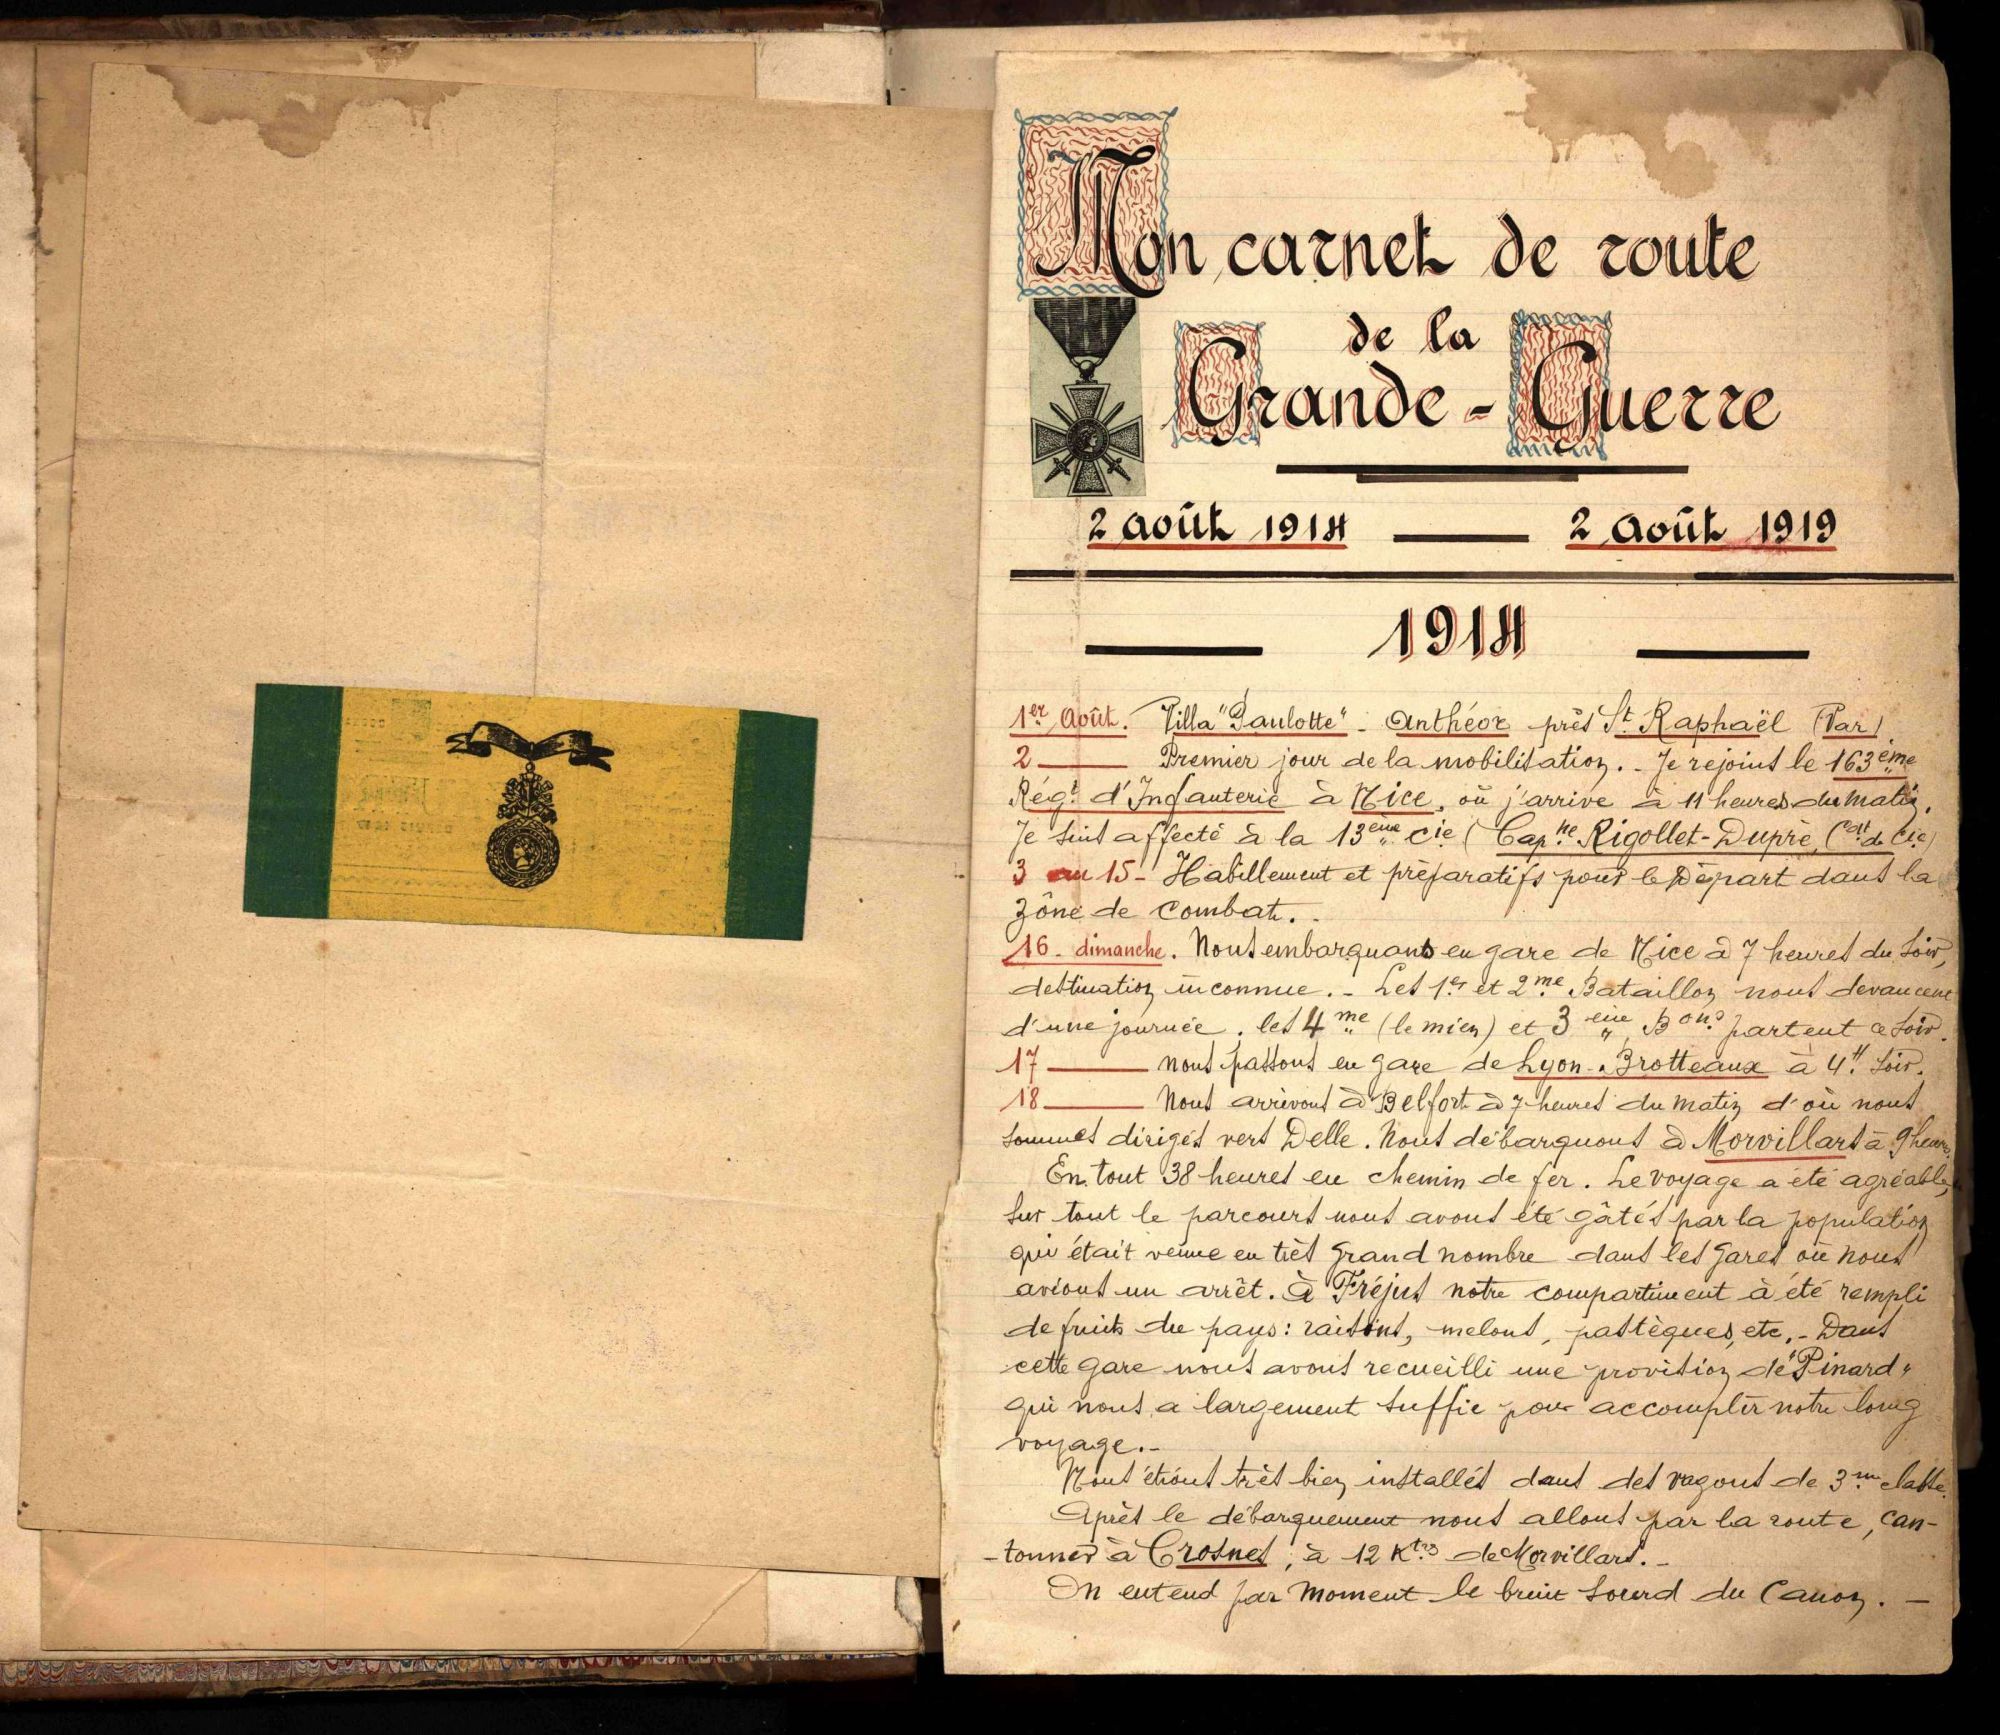 Mon carnet de route
de la
Grande-Guerre
2 Août 1914 — 2 Août 1919
1914
1er Août. Villa "Paulotte" - Anthéor près St Raphaël (Var)
2 — Premier jour de la mobilisation. - Je rejoins le 163ème
Régt d'Infanterie à Nice, où j'arrive à 11 heures du matin.
Je suis affecté à la 13ème Cie (Capne Rigollet-Dupré, Cdt de Cie)
3 au 15 - Habillement et préparatifs pour le Départ dans la
zône de combat. -
16 - dimanche. Nous embarquons en gare de Nice à 7 heures du soir,
destination inconnue. - Les 1er et 2me Bataillon nous devancent
d'une journée, les 4me (le mien) et 3ème Bons partent ce soir.
17 — nous passons en gare de Lyon-Brotteaux à 4H soir.
18 — Nous arrivons à Belfort à 7 heures du matin d'où nous
sommes dirigés vers Delle. Nous débarquons à Morvillars à 9 heures.
En tout 38 heures en chemin de fer. Le voyage a été agréable,
sur tout le parcours nous avons été gâtés par la population
qui était venue en très grand nombre dans les gares où nous
avions un arrêt. à Fréjus notre compartiment à été rempli
de fruits du pays: raisins, melons, pastèques, etc. - Dans
cette gare nous avons recueilli une provision de "Pinard"
qui nous a largement suffie pour accomplir notre long
voyage. -
Nous étions très bien installés dans des vagons de 3me classe.
Après le débarquement nous allons par la route, can-
-tonner à Crosnes, à 12 Ktrs de Morvillars. -
On entend par moment le bruit sourd du Canon. -